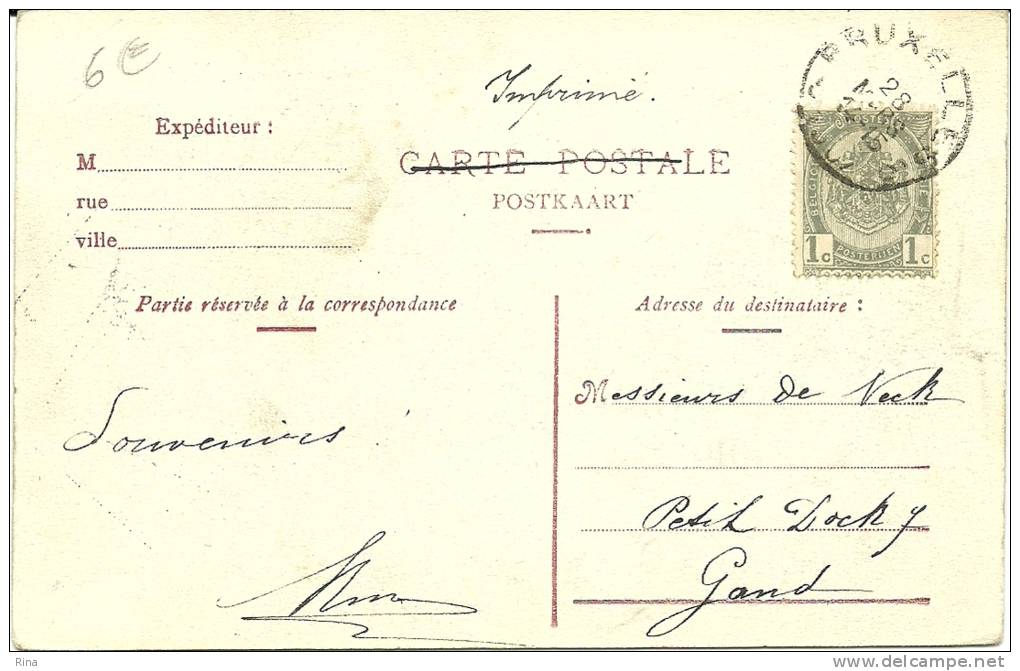 6 €
Imprimé.
BRUXELLES
28
Expéditeur :
CARTE POSTALE
M
rue
POSTKAART
ville
1c POSTERIJEN 1c
Partie réservée à la correspondance
Adresse du destinataire :
Messieurs De Neck
Souvenirs
Petit Dock 7
Gand
Rina
http://www.delcampe.net